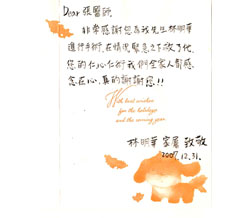 Dear 張醫師,
非常感謝您為我先生林明華
進行手術,在情況緊急之下救了他,
您的仁心仁術我們全家人都感
念在心,真的謝謝您!!
With best wishes
for the holidays
and the coming year
林明華 家屬 致敬
2007.12.31.